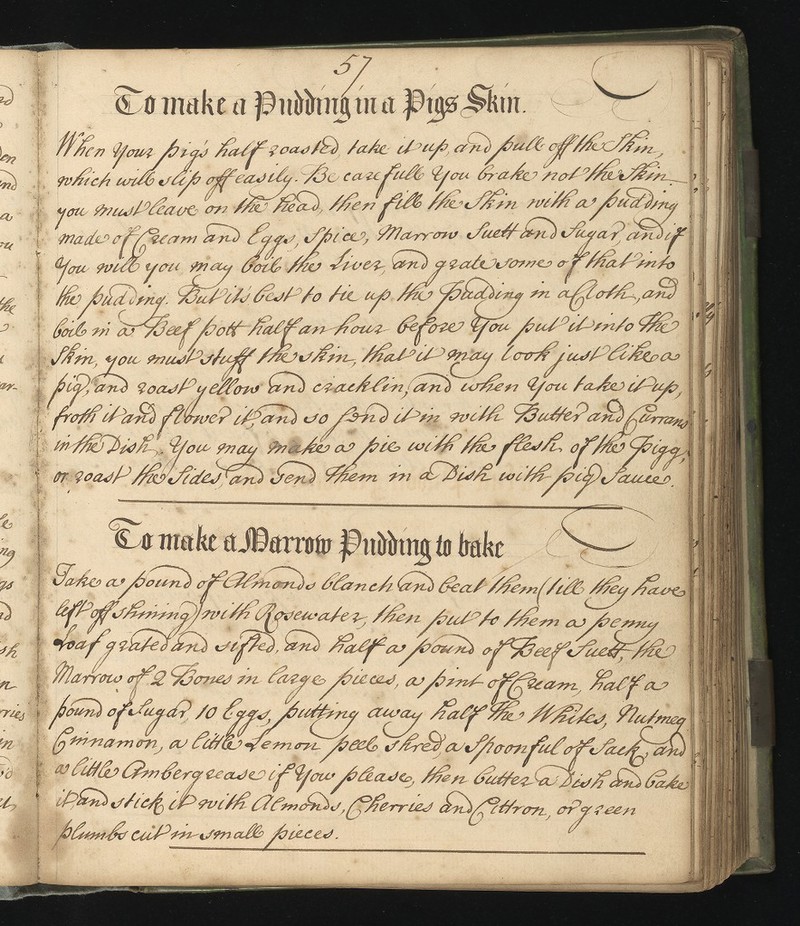 57
To make a Pudding in a Pigs Skin.
When Your pig's half roasted, take it up, and pull off the Skin,
which will slip off easily. Be carefull You brake not the Skin
you must leave on the head, then fill the Skin with a pudding
made of Cream and Eggs, Spice, Marrow Suett and Sugar, and if
You will you may boil the Liver, and grate some of that into
the pudding. But it's best to tie up the Pudding in a Cloth, and
boil in a Beef pott half an hour before You put it into the
Skin, you must stuff the skin, that it may look just like a
pig, and roast yellow and cracklin, and when You take it up,
froth it and flower it, and so send it in with Butter and Currans
in the Dish. You may make a pie with the flesh of the Pigg,
or roast the Sides, and send them in a Dish with pig Sauce.
To make a Marrow Pudding to bake
Take a pound of Almonds blanch and beat them (till they have
left off shining) with Rosewater, then put to them a penny
Loaf grated and sifted, and half a pound of Beef Suett, the
Marrow of 2 Bones in large pieces, a pint of Cream, half a
pound of Sugar, 10 Eggs, putting away half the Whites, Nutmeg
Cinnamon, a little Lemon peel shred a Spoonful of Sack, and
a little Ambergrease if You please, then butter a Dish and bake
it, and stick it with Almonds, Cherries and Cittron, or green
plumbs cut in small pieces.